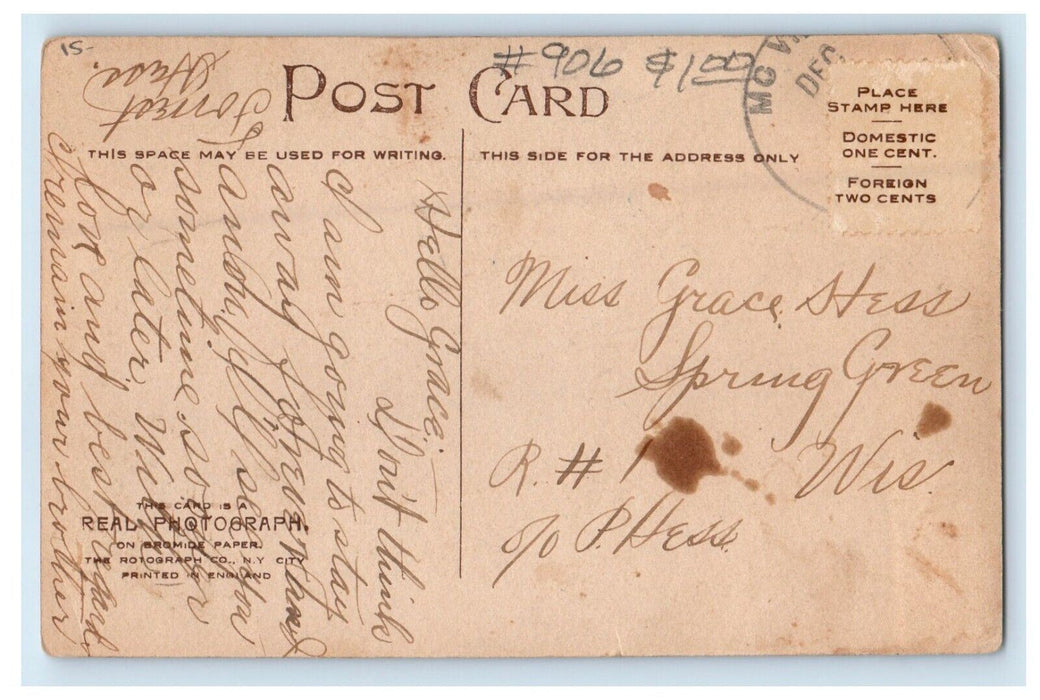 15-
#906 $1.00
POST CARD
MC V
DEC
PLACE
STAMP HERE
DOMESTIC
ONE CENT.
FOREIGN
TWO CENTS
THIS SPACE MAY BE USED FOR WRITING.
THIS SIDE FOR THE ADDRESS ONLY
Hello Grace,—
Don't think
I am going to stay
away forever and
anoby, I'll see you
sometime sooner
or later. With
love and best regards
I remain your brother
Forrest
Hess.
Miss Grace Hess
Spring Green
R. # 1 Wis.
c/o P. Hess.
THIS CARD IS A
REAL PHOTOGRAPH.
ON BROMIDE PAPER.
THE ROTOGRAPH CO., N.Y. CITY
PRINTED IN ENGLAND